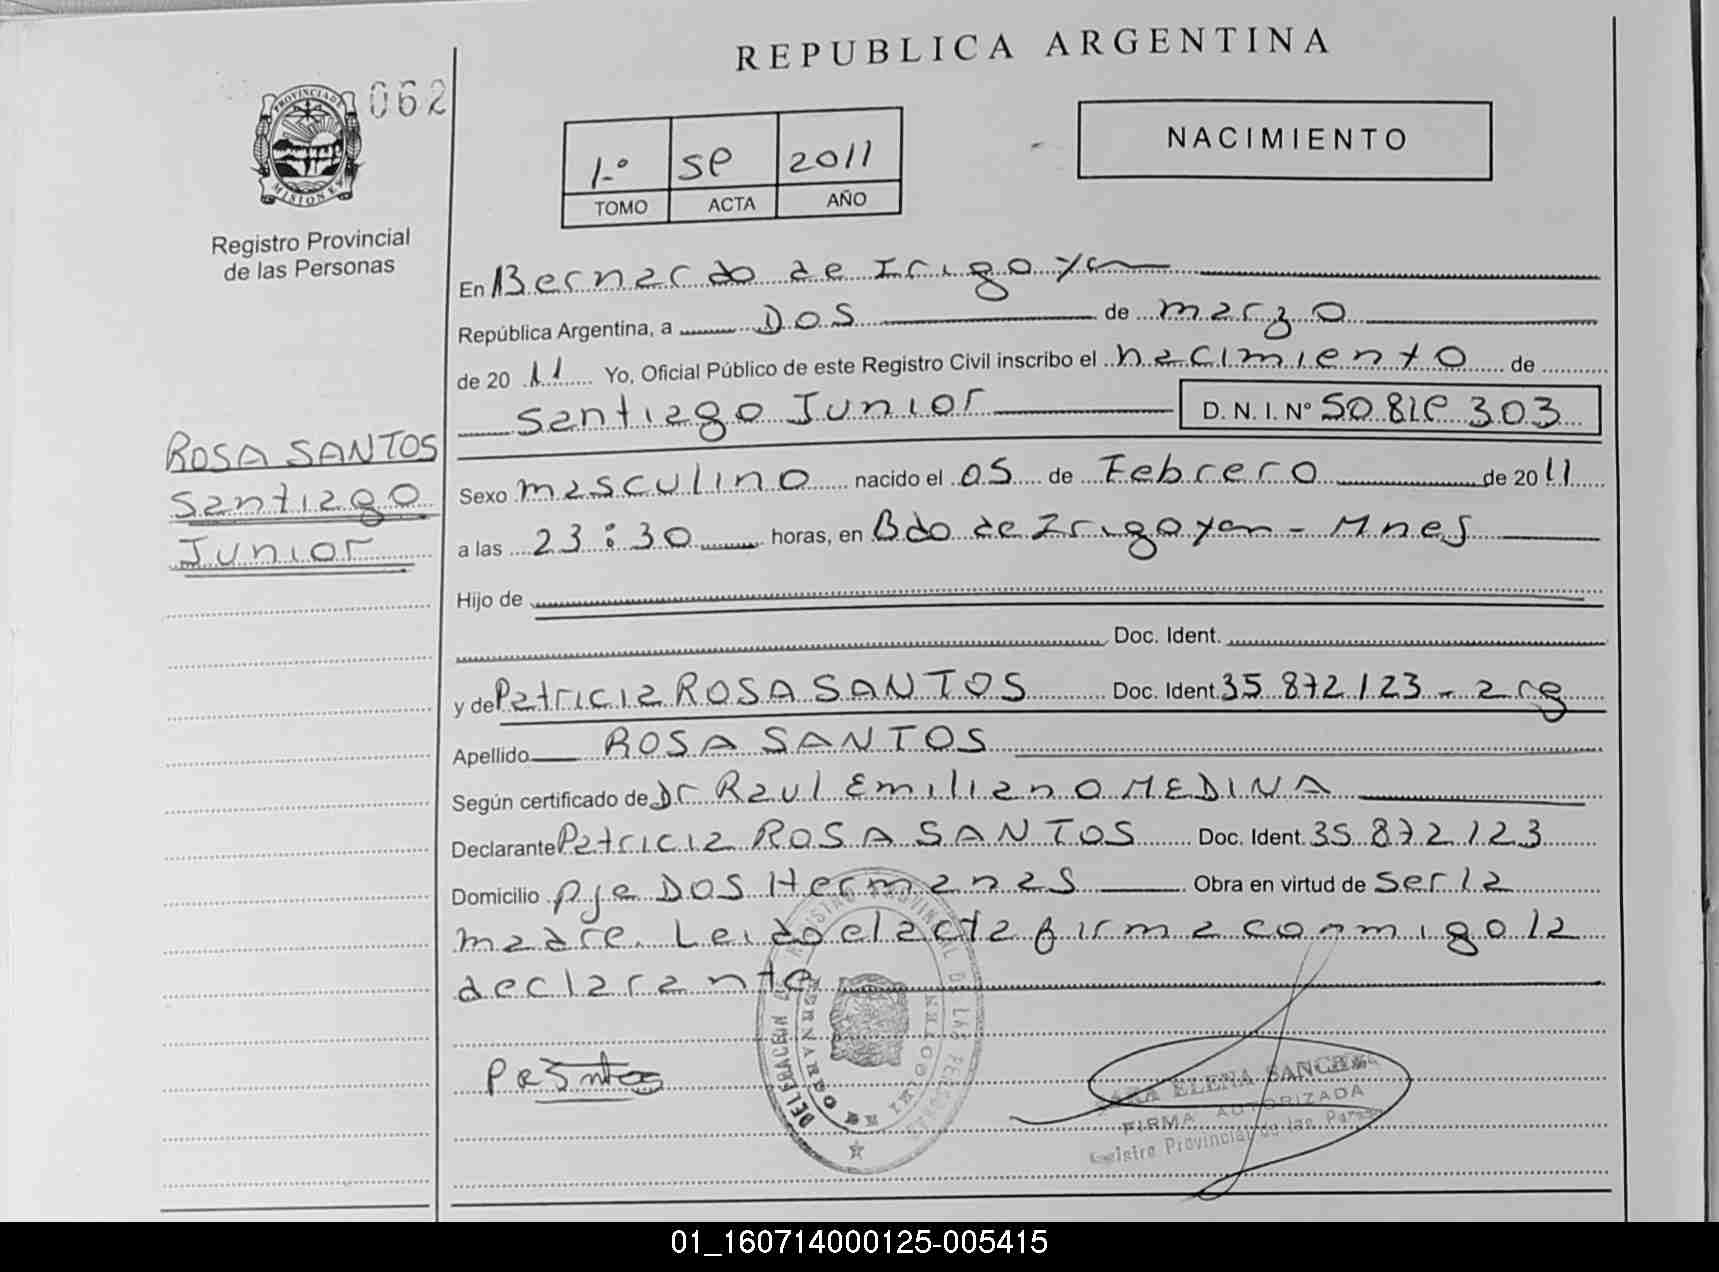 REPUBLICA ARGENTINA
062
PROVINCIA DE
MISIONES
Registro Provincial
de las Personas
1.º 2011
TOMO ACTA AÑO
NACIMIENTO
En Bernardo de Irigoyen
República Argentina, a DOS de marzo
de 2011 Yo, Oficial Público de este Registro Civil inscribo el nacimiento de
Santiago Junior D. N. I. Nº 303
ROSA SANTOS
Santiago
Junior
Sexo masculino nacido el 05 de Febrero de 2011
a las 23:30 horas, en Bdo de Irigoyen - Mnes
Hijo de
Doc. Ident.
y de Patricia ROSA SANTOS Doc. Ident. 35.872.123 - arg
Apellido ROSA SANTOS
Según certificado de Dr Raul Emiliano MEDINA
Declarante Patricia ROSA SANTOS Doc. Ident. 35.872.123
Domicilio Pje DOS Hermanas Obra en virtud de ser la
madre. Leido el acta firma conmigo la
declarante
REGISTRO PROVINCIAL DE LAS PERSONAS
ELENA
FIRMA AUTORIZADA
Registro Provincial de las
01_160714000125-005415